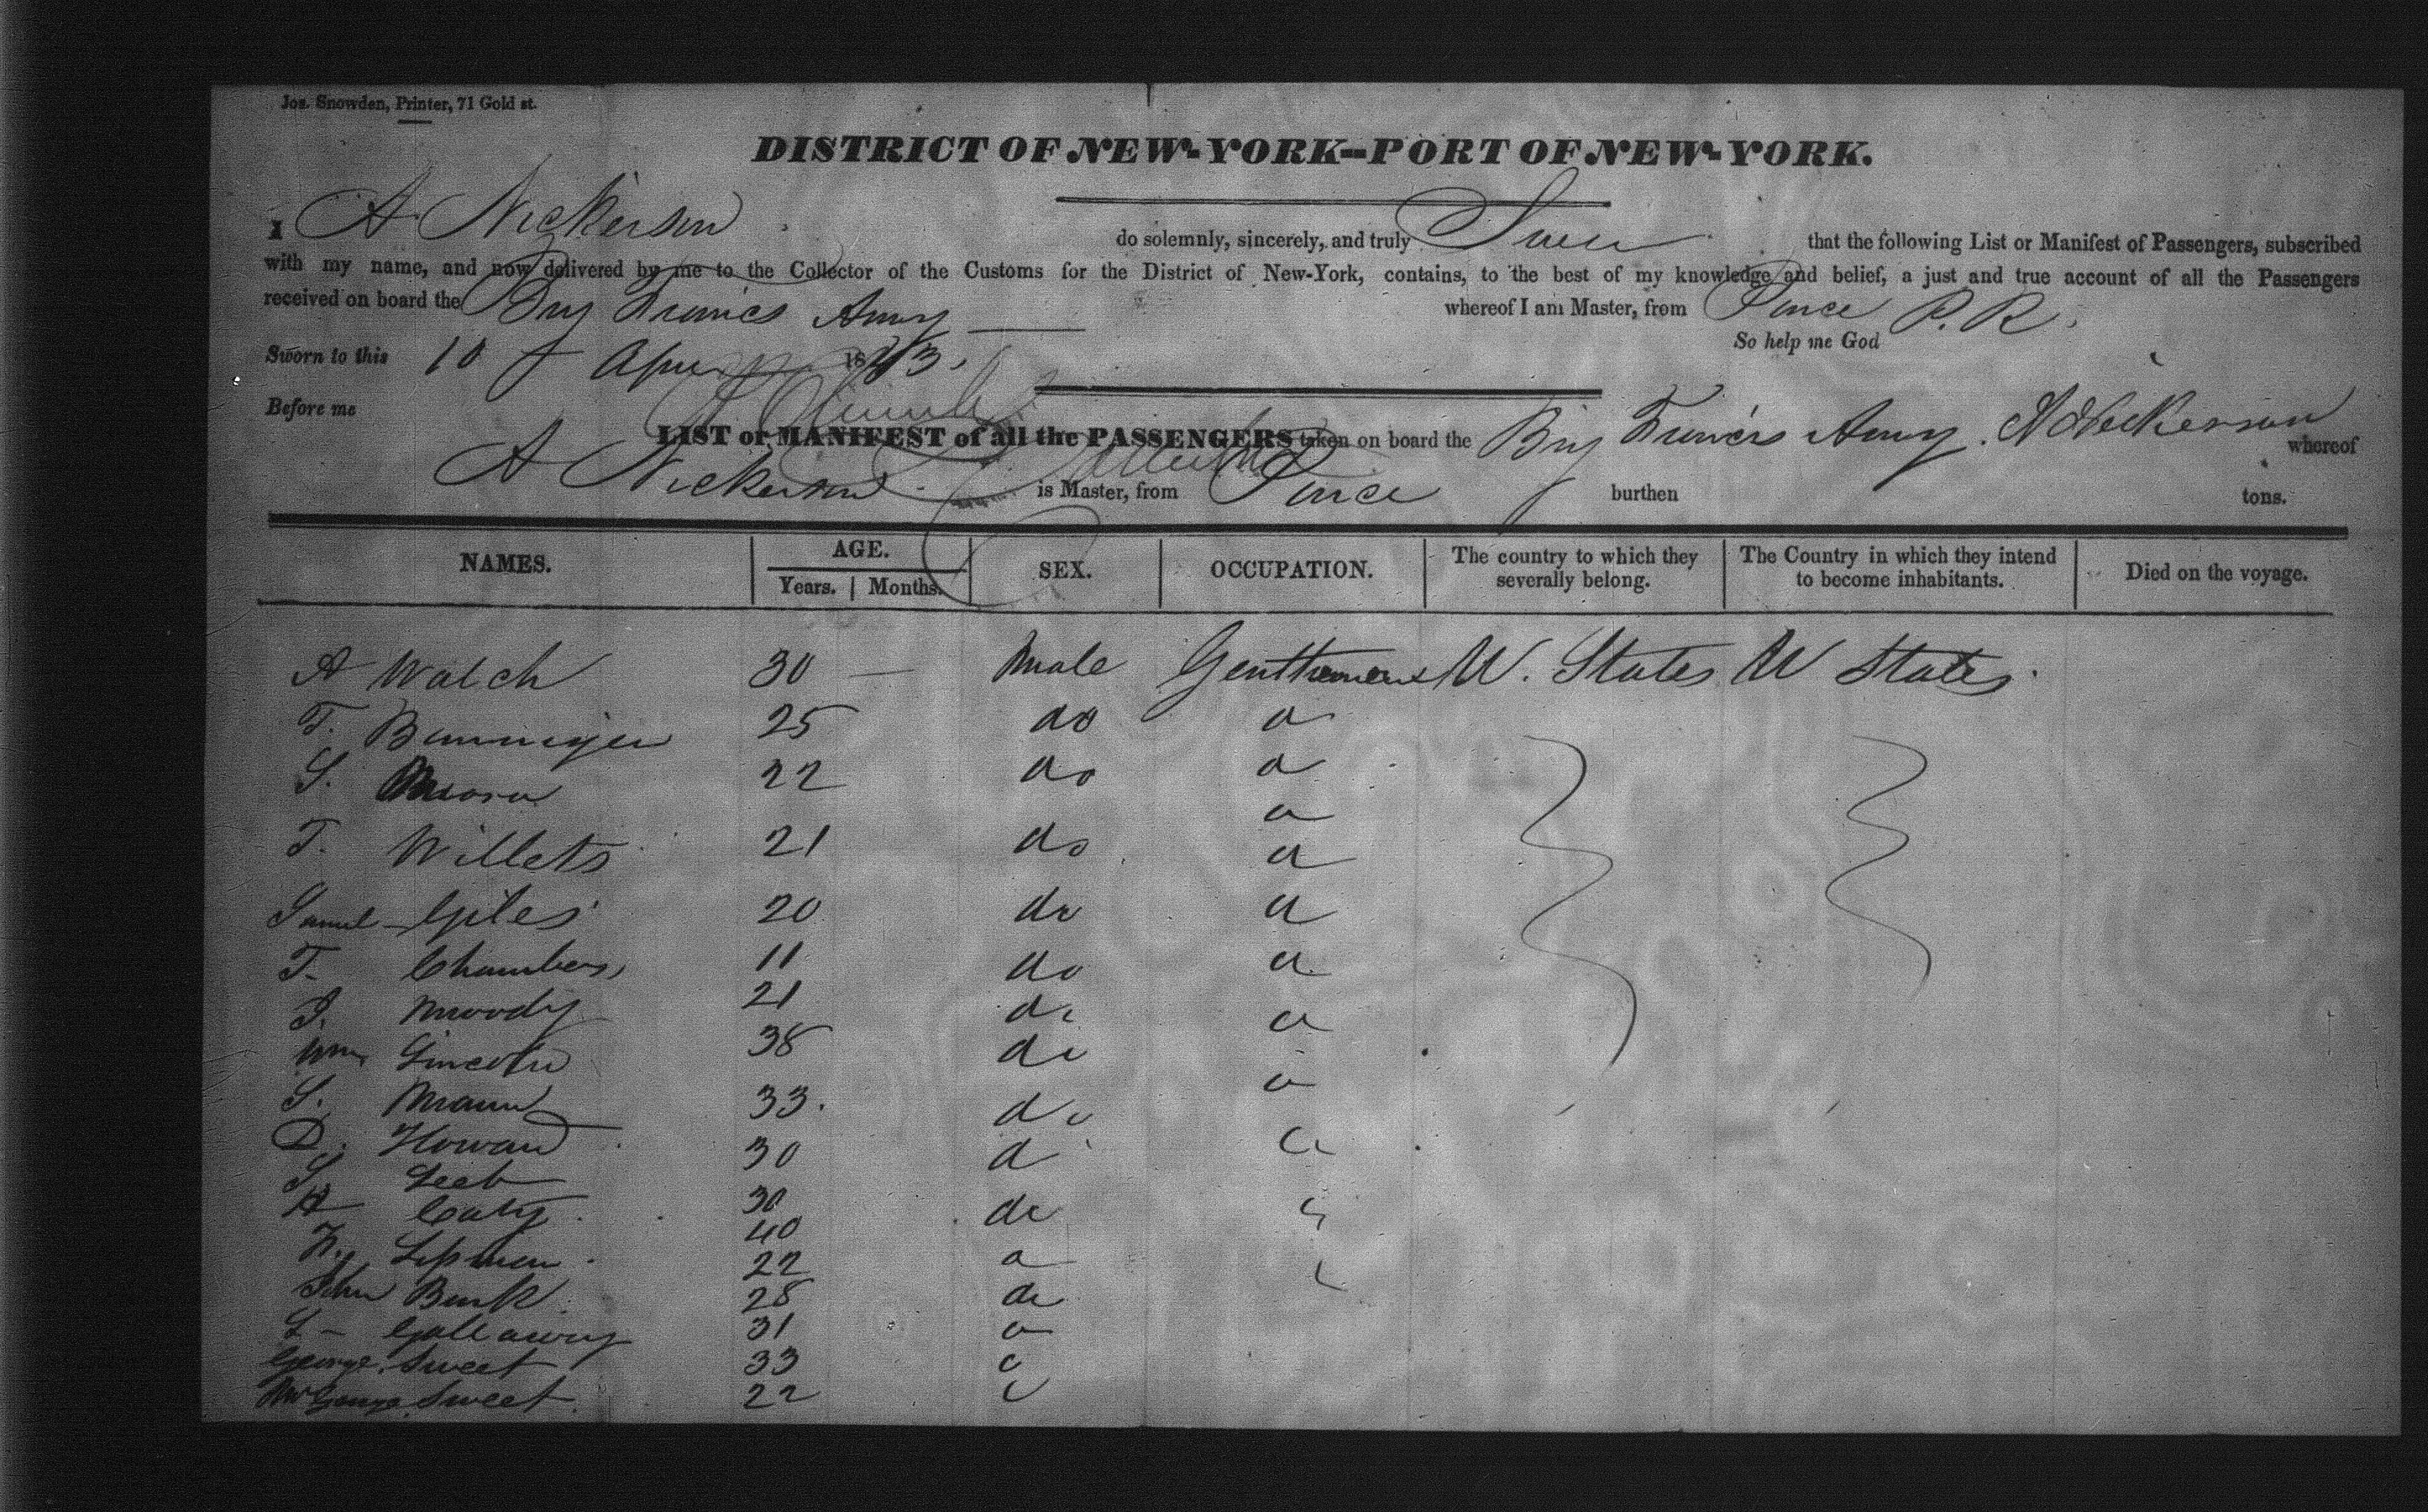 Jos. Snowden, Printer, 71 Gold st.
DISTRICT OF NEW-YORK--PORT OF NEW-YORK.
I A Nickerson do solemnly, sincerely, and truly Swear that the following List or Manifest of Passengers, subscribed
with my name, and now delivered by me to the Collector of the Customs for the District of New-York, contains, to the best of my knowledge and belief, a just and true account of all the Passengers
received on board the Brig Francis Amy whereof I am Master, from Ponce P. R.
So help me God
Sworn to this 10 April 1843.
Before me
A Nickerson
LIST or MANIFEST of all the PASSENGERS taken on board the Brig Francis Amy whereof
A Nickerson is Master, from Ponce burthen tons.
NAMES. AGE. SEX. OCCUPATION. The country to which they severally belong. The Country in which they intend to become inhabitants. Died on the voyage.
Years. Months.
A Walch 30 — Male Gentlemens U. States U States.
T. 25 do
S. 22 do
T. Willets 21 do
Samuel Giles 20 do
T. Chambers 11 do
J. Moody 21 do
Wm Lincoln 38 do
S. Mann 33. do
D. Howard 30 d
S. 30 do
A Caty 40
Lipman 22
John Burk 28 do
L - Gallaway 31
George Sweet 33
Mr George Sweet 22